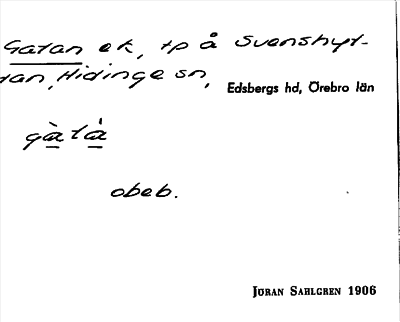 Gatan ek, tp å Svenshyt-
tan, Hidinge sn,
Edsbergs hd, Örebro län
gàtà
obeb.
JÖRAN SAHLGREN 1906